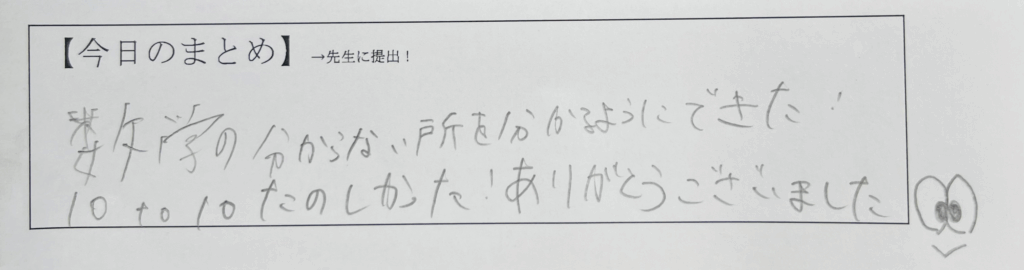 【今日のまとめ】→先生に提出！
数学の分からない所を分かるようにできた！
10 to 10 たのしかった！ありがとうございました